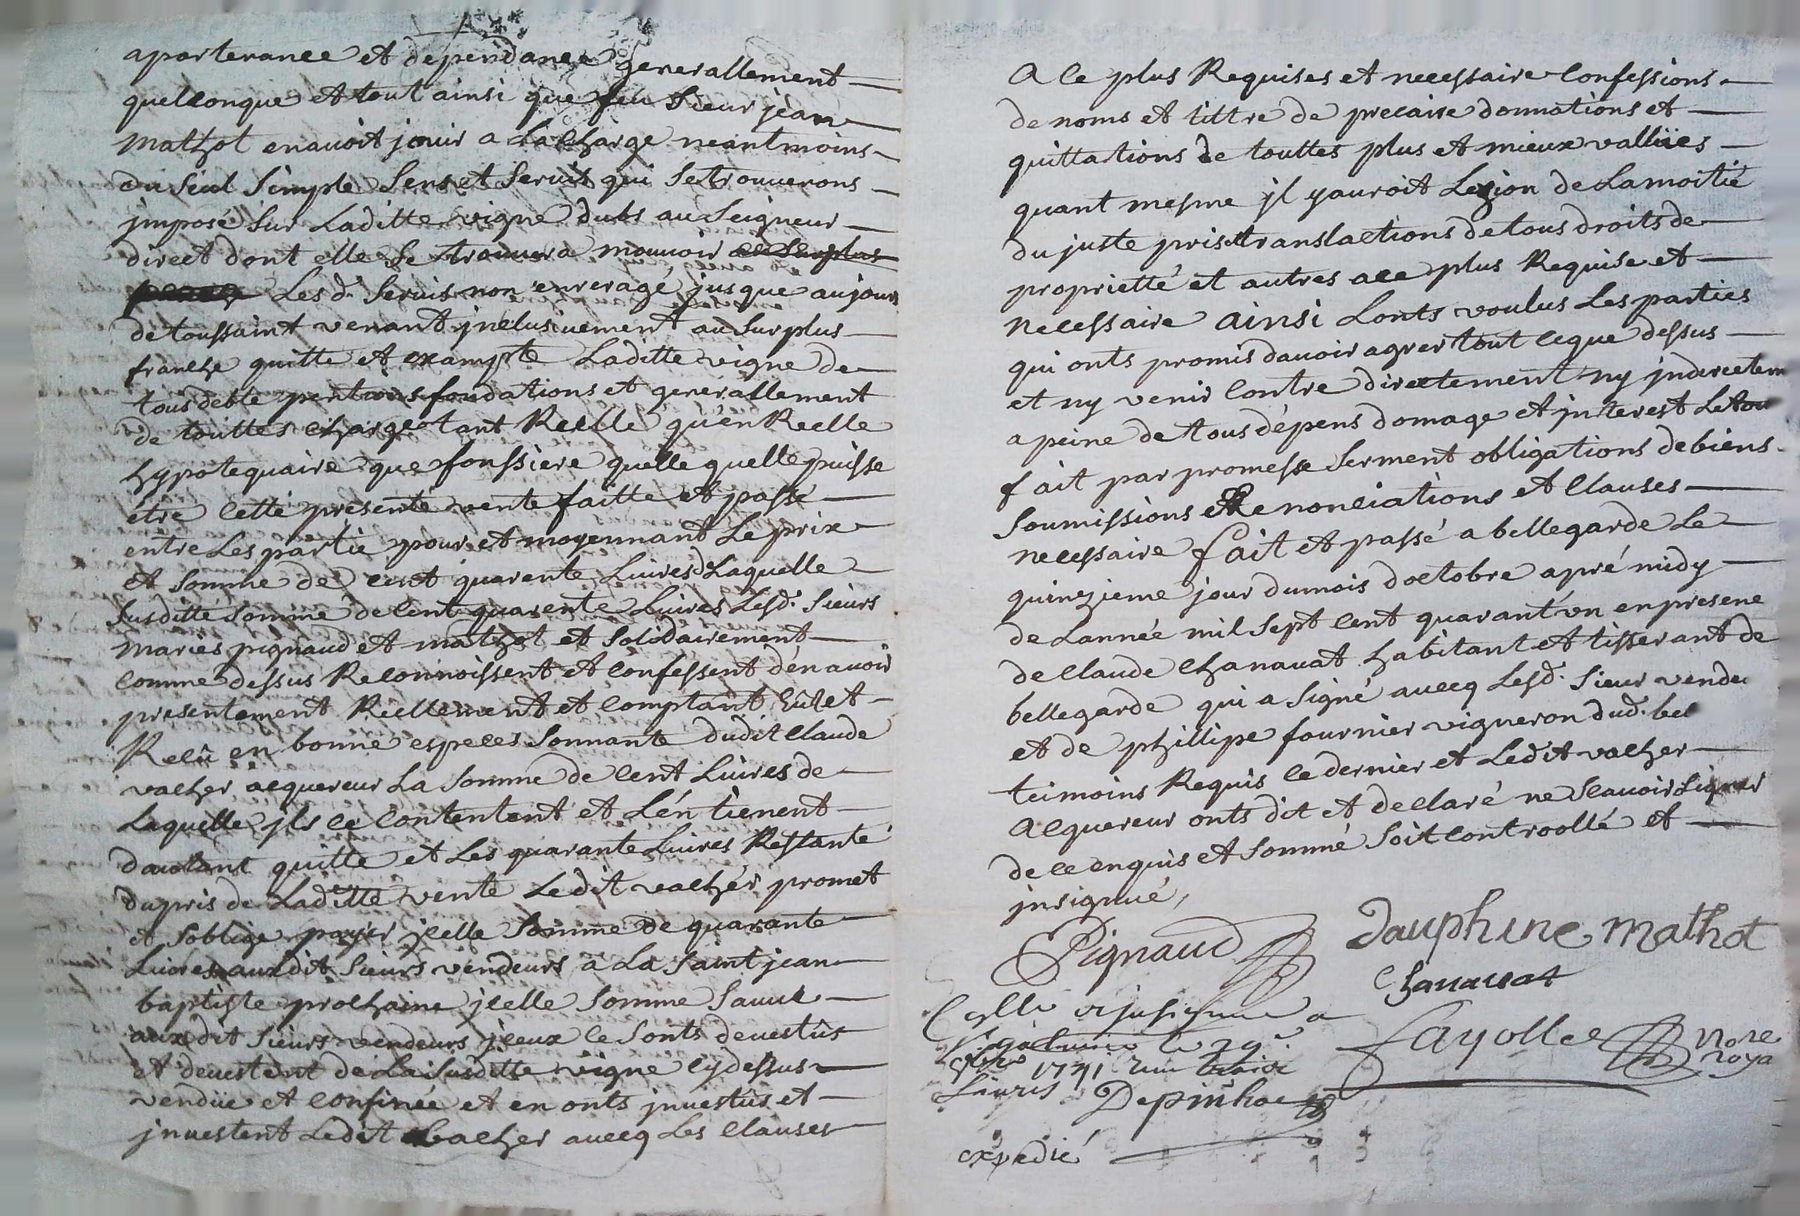 apartenance et dependance generallement
quelconque et tout ainsi que feu sieur jean
Mathot en auoit jouir a La charge neantmoins
du seul simple sens et seruis qui se trouuerons
jmposé sur Laditte vigne dubs au seigneur
direct dont elle se trouuera mouuoir et surplus
Lesd. seruis non enrerage jusque au jour
de toussaint venant jnclusiuement au surplus
franche quitte et exampte Laditte vigne de
tous debte pentions fondations et generallement
de touttes charge tant Reelle qu'en Reelle
hypotequaire que fonssiere quelle quelle puisse
étre cette presente vente faitte et passé
entre Les partie pour et moyennant Le prix
et somme de cent quarente Liures Laquelle
susditte somme de cent quarente Liures Lesd. sieurs
maries pignaud et mathot et solidairement
comme dessus Reconnoissent et confessent d'en auoir
presentement Reellement et comptant hut et
Recû en bonne especes sonnante dudit Claude
vacher acquereur La somme de cent Liures de
Laquelle jls ce contentent et L'en tienent
dautant quitte et Les quarante Liures Restante
du pris de Laditte vente Ledit vacher promet
et soblige payer jcelle somme de quarante
Liures auxdit sieurs vendeurs a La saint jean
baptiste prochaine jcelle somme sauue
auxdit sieurs vendeurs jceux ce sonts deuestûs
et deuestent de La susditte vigne cy dessus
vendüe et confinee et en onts jnuestûs et
jnuestent Ledit vacher auecq Les clauses
a ce plus Requises et necessaire confessions
de noms et tittre de precaire donnations et
quittations de touttes plus et mieux vallües
quant mesme jl y auroit Lezion de La moitié
du juste pris translactions de tous droits de
proprietté et autres a ce plus Requise et
necessaire ainsi Lonts voulus Les parties
qui onts promis dauoir agreer tout ceque dessus
et ny venir contre directement ny jndirectem
a peine de tous dépens domage et jnterest Le tou
fait par promesse serment obligations de biens
soumissions et Renonciations et clauses
necessaire fait et passé a bellegarde Le
quinzieme jour du mois doctobre apré midy
de Lannée mil sept cent quarant'un en presene
de Claude Chanauat habitant et tisserant de
bellegarde qui a signé auecq Lesd. sieur vende
et de phillipe fournier vigneron dud. bel
teimoins Requis ce dernier et Ledit vacher
acquereur onts dit et declaré ne scauoir signer
de ce enquis et sommé soit controollé et
jnsignué,
Pignaud Dauphine Mathot
Chanauat
Collé et jnsignué a
le 29e Fayolle Nore roya
1741
Liures Depinhac
expedié